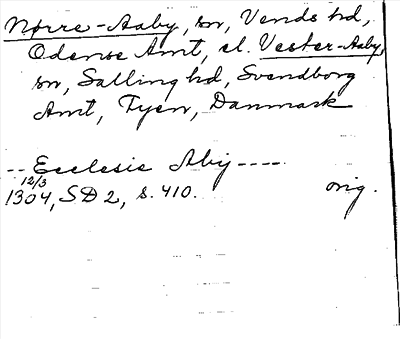 Nørre-Aaby, sn, Vends hd,
Odense Amt, el. Vester-Aaby,
sn, Salling hd, Svendborg
Amt, Fyen, Danmark
-- Ecclesie Abij ----
12/3
1304, SD 2, s. 410. orig.